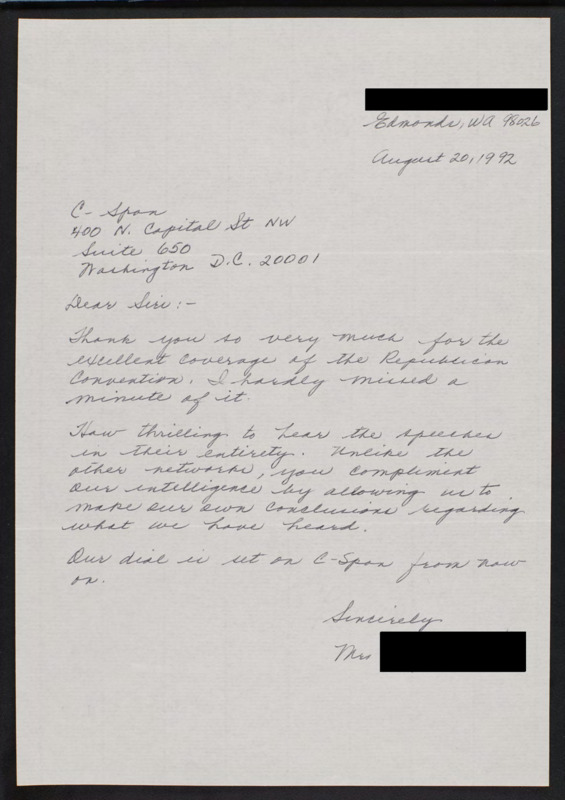 Edmonds, WA 98026
August 20, 1992
C-Span
400 N. Capital St NW
Suite 650
Washington D.C. 20001
Dear Sir:-
Thank you so very much for the
excellent coverage of the Republican
Convention. I hardly missed a
minute of it.
How thrilling to hear the speeches
in their entirety. Unlike the
other networks, you compliment
our intelligence by allowing us to
make our own conclusions regarding
what we have heard.
Our dial is set on C-Span from now
on.
Sincerely
Mrs